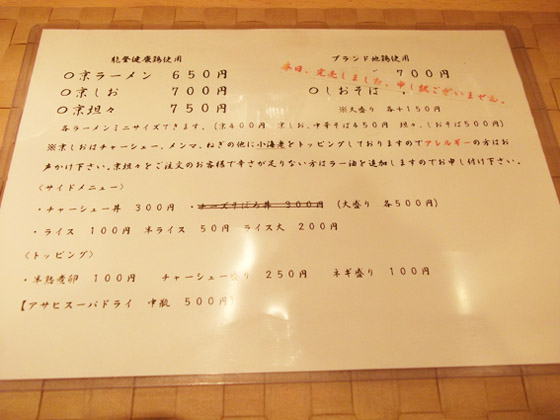 能登健康鶏使用 ブランド地鶏使用
○京ラーメン 650円 700円
本日、完売しました。申し訳ございません。
○京しお 700円 ○しおそば
○京坦々 750円 ※大盛り 各+150円
各ラーメンミニサイズできます。(京400円 京しお、中華そば450円 坦々、しおそば500円)
※京しおはチャーシュー、メンマ、ねぎの他に小海老をトッピングしておりますのでアレルギーの方はお
声かけ下さい。京坦々をご注文のお客様で辛さが足りない方はラー油を追加しますのでお申し付け下さい。
〈サイドメニュー〉
・チャーシュー丼 300円 ・チーズそぼろ丼 300円 (大盛り 各500円)
・ライス 100円 半ライス 50円 ライス大 200円
〈トッピング〉
・半熟煮卵 100円 チャーシュー盛り 250円 ネギ盛り 100円
【アサヒスーパドライ 中瓶 500円】